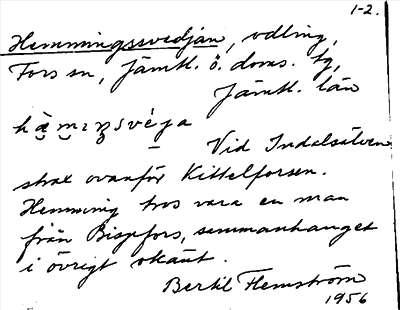 1-2.
Hemmingssvedjan, odling,
Fors sn, Jämtl. ö. doms. tg,
Jämtl. län
Vid Indalsälven
strax ovanför Kittelforsen.
Hemming tros vara en man
från Bispfors, sammanhanget
i övrigt okänt.
Bertil Flemström
1956